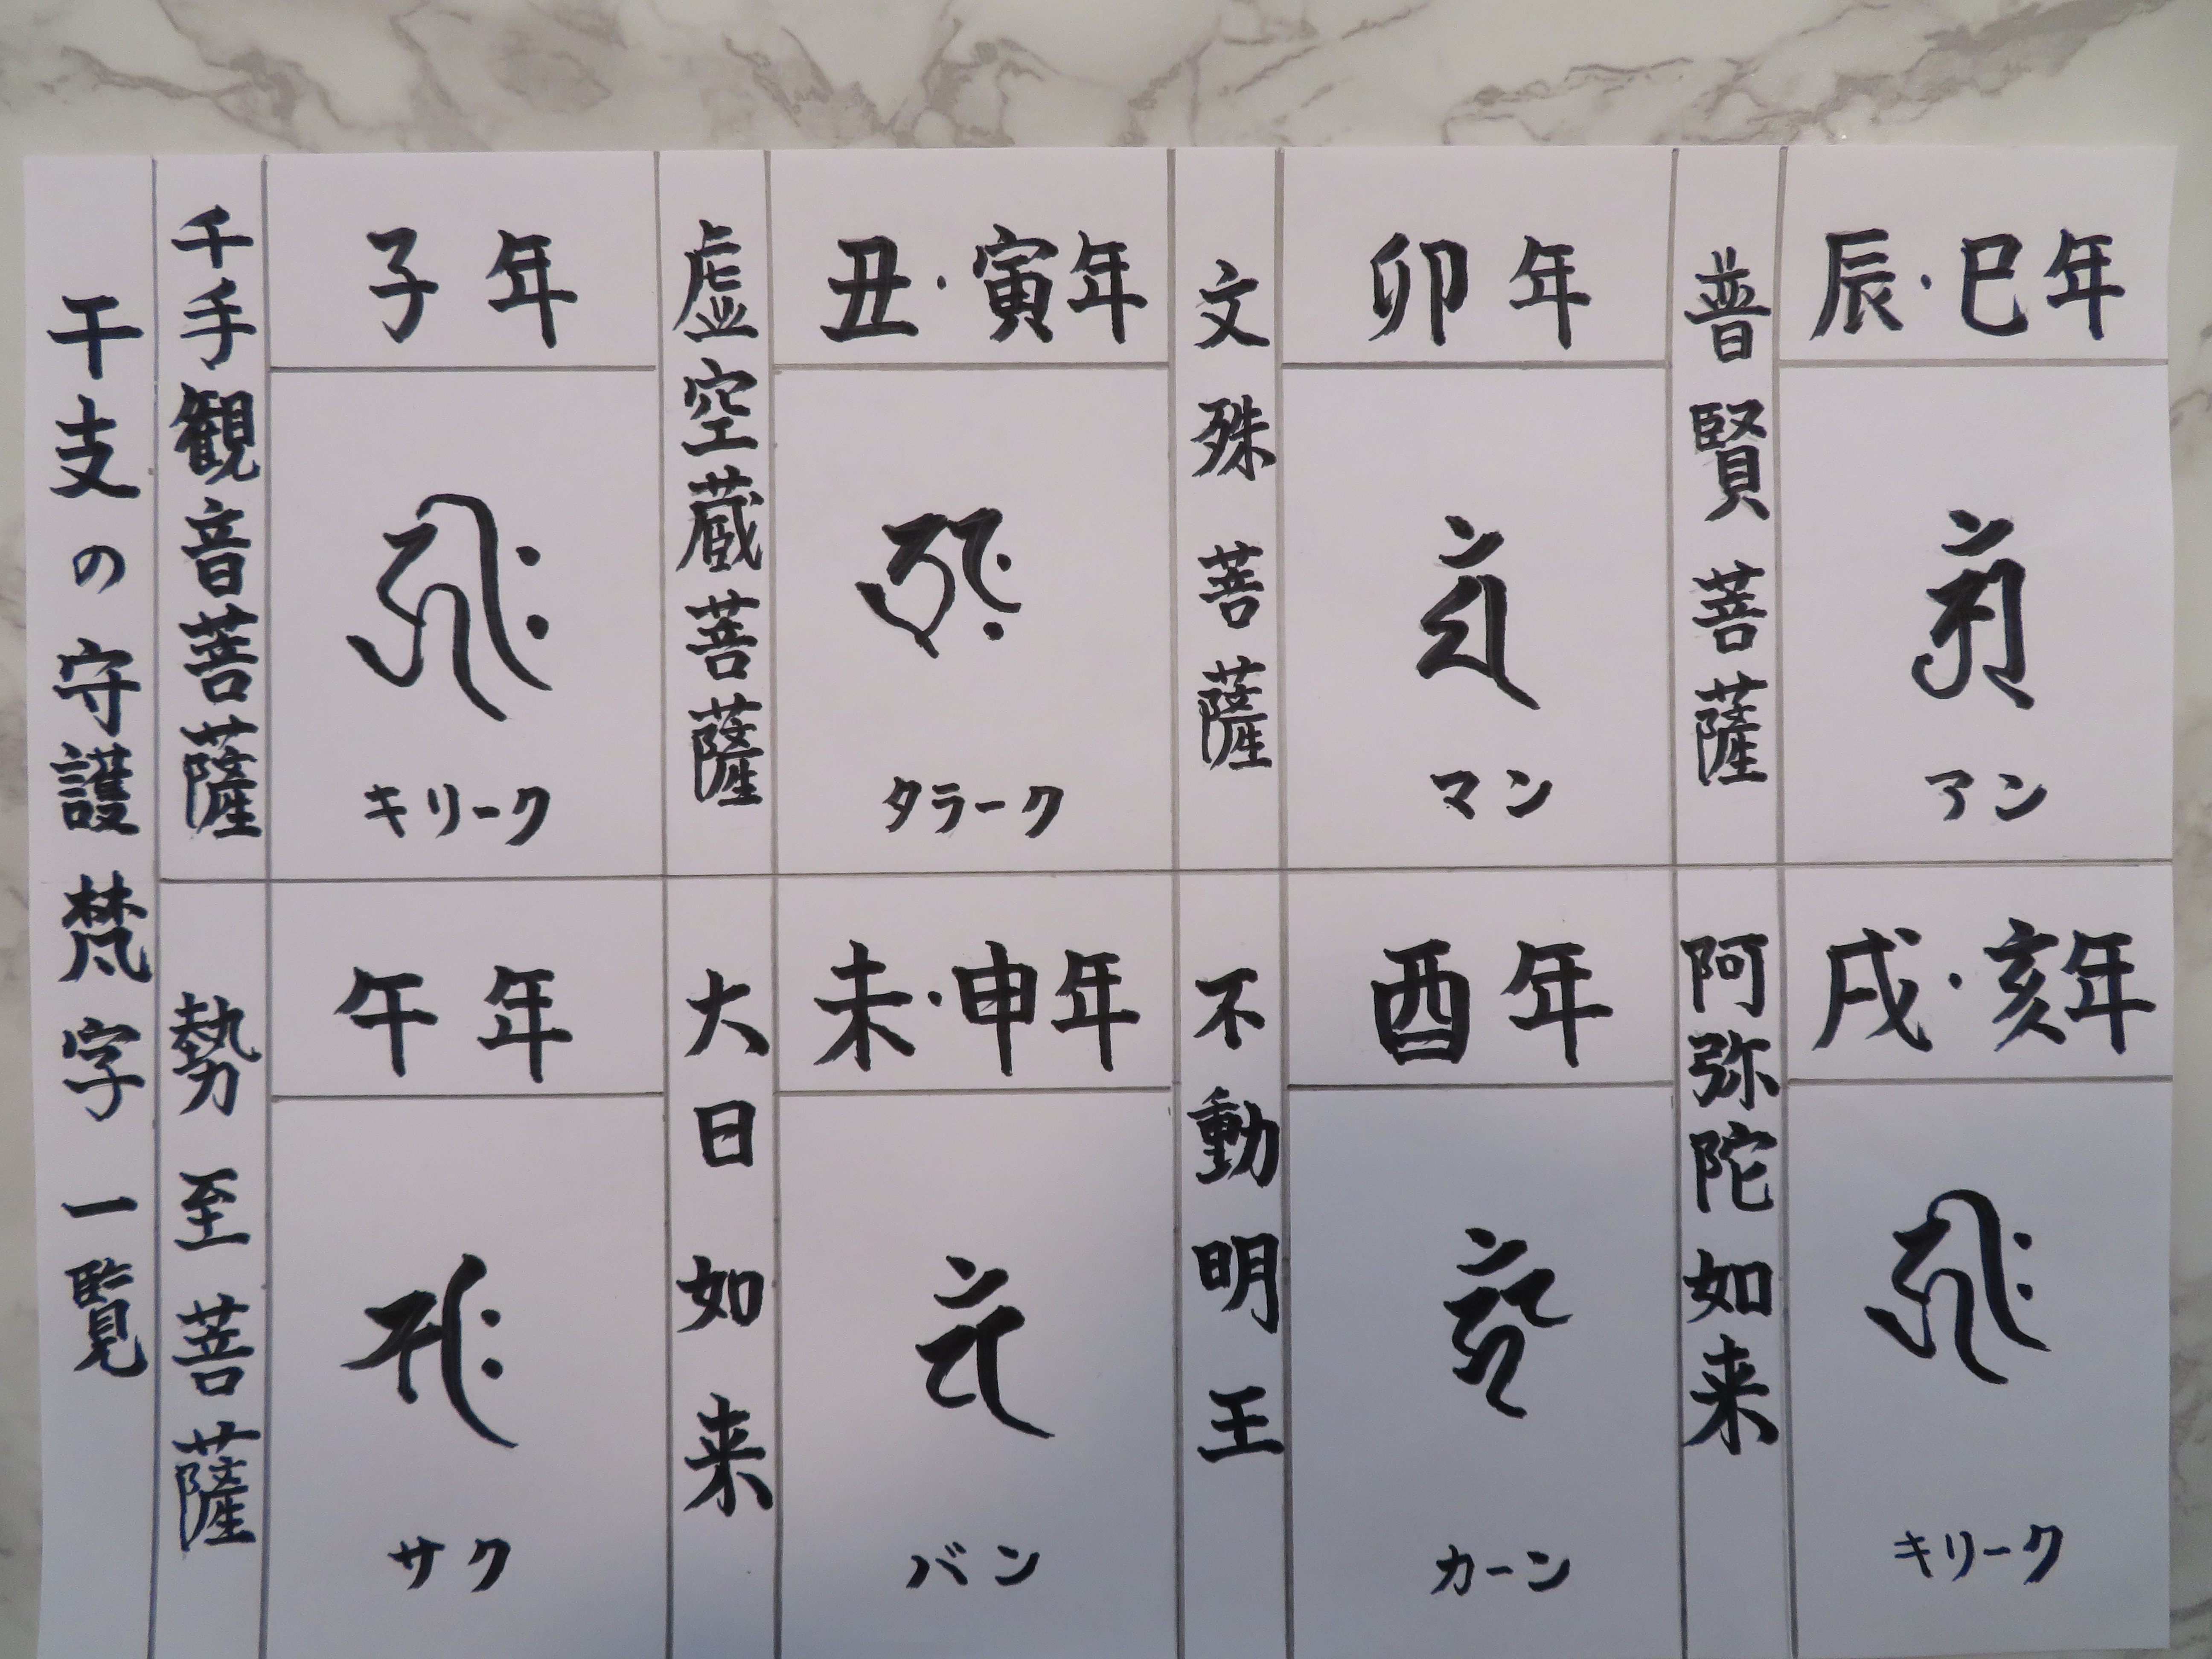 干支の守護梵字一覧
千手観音菩薩
子年
キリーク
虚空蔵菩薩
丑・寅年
タラーク
文殊菩薩
卯年
マン
普賢菩薩
辰・巳年
アン
勢至菩薩
午年
サク
大日如来
未・申年
バン
不動明王
酉年
カーン
阿弥陀如来
戌・亥年
キリーク